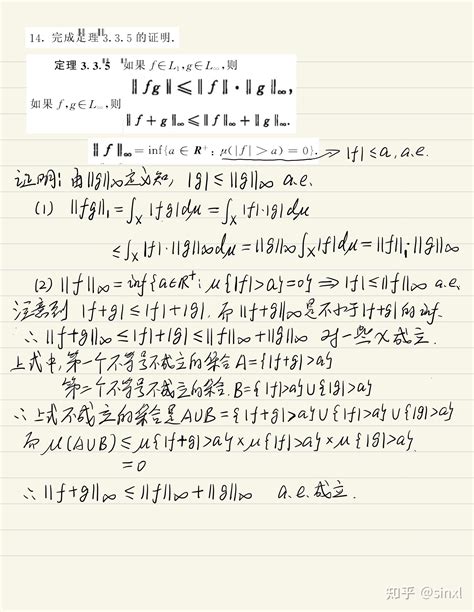 14. 完成定理 3.3.5 的证明.
定理 3.3.5 如果 f∈L₁,g∈L∞,则
‖fg‖≤‖f‖·‖g‖∞,
如果 f,g∈L∞,则
‖f+g‖∞≤‖f‖∞+‖g‖∞.
‖f‖∞=inf{a∈R⁺: μ(|f|>a)=0}. ⇒ |f|≤a, a.e.
证明: 由‖g‖∞定义知, |g|≤‖g‖∞ a.e.
(1) ‖fg‖₁=∫ₓ|fg|dμ=∫ₓ|f|·|g|dμ
≤∫ₓ|f|·‖g‖∞dμ=‖g‖∞∫ₓ|f|dμ=‖f‖₁·‖g‖∞
(2) ‖f‖∞=inf{a∈R⁺: μ{|f|>a}=0} ⇒ |f|≤‖f‖∞ a.e.
注意到 |f+g|≤|f|+|g|. 而‖f+g‖∞是不小于|f+g|的inf.
∴ ‖f+g‖∞≤|f|+|g|≤‖f‖∞+‖g‖∞ 对一些x成立.
上式中,第一个不等号不成立的集合A={|f+g|>a}
第二个不等号不成立的集合. B={|f|>a}∪{|g|>a}
∴上式不成立的集合是A∪B={|f+g|>a}∪{|f|>a}∪{|g|>a}
而 μ(A∪B)≤μ{|f+g|>a}×μ{|f|>a}×μ{|g|>a}
=0
∴ ‖f+g‖∞≤‖f‖∞+‖g‖∞ a.e.成立.
知乎 @sinxl